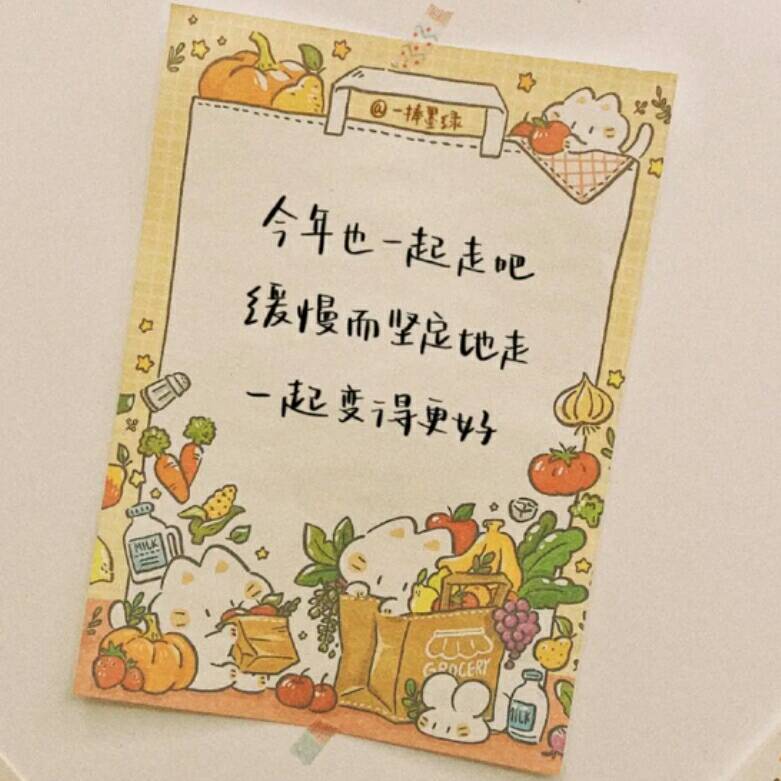 @一捧墨球
今年也一起走吧
缓慢而坚定地走
一起变得更好
MILK
GROCERY
MILK